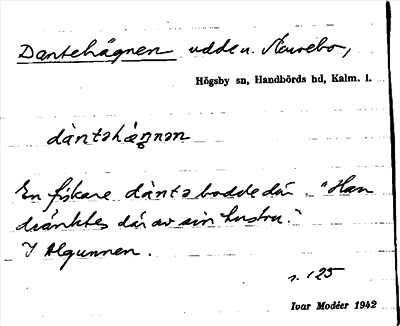 Dantehägnen udde u. Åurebo,
Högsby sn, Handbörds hd, Kalm. l.
dàntəhæ̀ŋnən
En fiskare dàntə bodde där. "Han
dränktes där av sin hustru."
I Algunnen.
s. 125
Ivar Modéer 1942